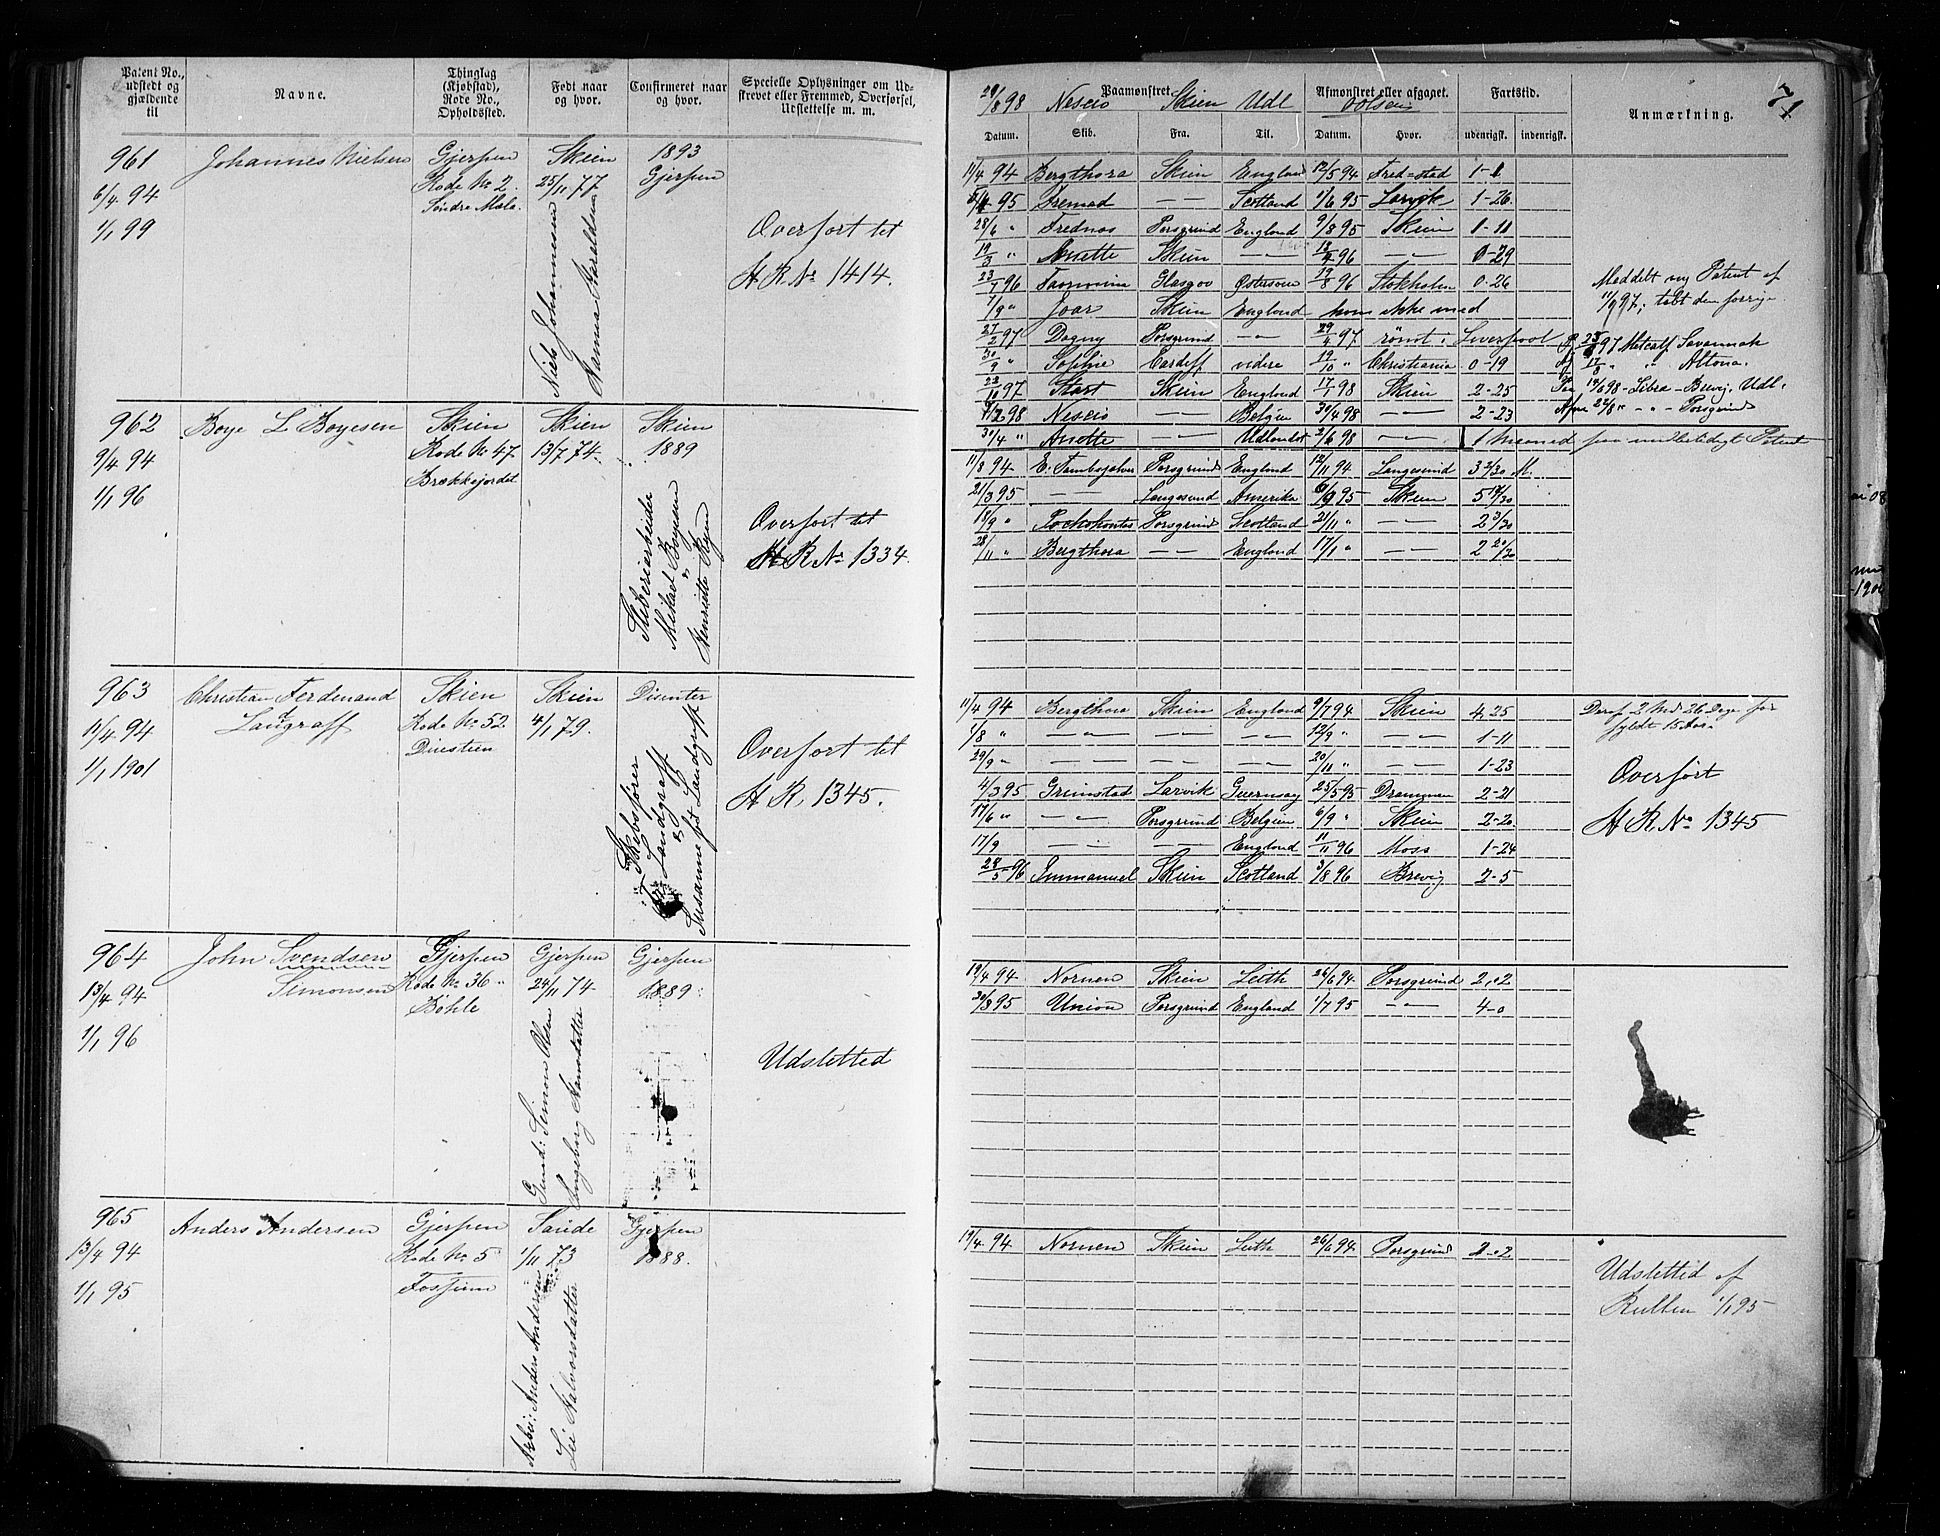 Patent No., udstedt og gjældende til
Navne.
Thinglag (Kjøbstad), Rode No., Opholdssted.
Født naar og hvor.
Confirmeret naar og hvor.
Specielle Oplysninger om Udskrevet eller Fremmed, Overførsel, Udslettelse m. m.
961
6/4 94
1/1 99
Johannes Nielsen
Gjerpen
Rode No 2.
Søndre Mæla.
Skien
25/11 77
Niels Johannesen
Hanna Haraldsen
1893
Gjerpen
Overført til
H R No 1414.
962
9/4 94
1/1 96
Boye L Boyesen
Skien
Rode No 47.
Brækkejordet
Skien
13/7 74.
Skien
1889
Støberiarbeider
Mikael Boyesen
Henriette Ryen
Overført til
H R No 1334.
963
11/4 94
1/1 1901
Christian Ferdinand
Langraff
Skien
Rode No 52
Duestien
Skien
4/1 79.
Dissenter
Skibsfører
Landgraff
Susanne fød Landgraff
Overført til
H R 1345.
964
13/4 94
1/1 96
John Svendsen
Simonsen
Gjerpen
Rode No 36
Böhle
Gjerpen
24/11 74
Gmd: Simon Olsen
Ingeborg Hansdatter
Gjerpen
1889
Udsletted
965
13/4 94
1/1 95
Anders Andersen
Gjerpen
Rode No 5
Fossum
Saude
1/11 73
Arbei: Anders Andersen
Lie Halvorsdatter
Gjerpen
1888.
28/8 98 Nescio Skien Udl
71
Paamønstret
Afmønstret eller afgaaet.
Fartstid.
Anmærkning.
Datum. Skib. Fra. Til. Datum. Hvor. udenrigsk. indenrigsk.
11/4 94 Bergthora Skien England 12/5 94 Fred=stad 1-1
95 Fremad — — Scotland 1/6 95 Larvik 1-26.
28/6 " Frednæs Porsgrund England 9/8 95 Skien 1-11
Anette Skien — — — — 0-29
23/7 96 Taormina Glasgov Østersøen 19/8 96 Stokholm 0-26
1/9 " Joar Skien England kom ikke med
27/2 97 Dagny Porsgrund — — 29/4 97 römt i Liverpool
30/9 " Sophie Cardiff videre 19/10 " Christiania 0-19
22/10 97 Start Skien England 17/1 98 Skien 2-25
98 Nescio — — Belgien 30/4 98 — — 2-23
30/4 " Anette — — Udlandet 2/6 98 — — 1 maaned paa
Meddelt ny Patent af
11/9 97, tabt den forrige
97 Metcalf Savannah
" " Altona.
14/6 98 - Libra - Brevig. Udl.
22/8 " - " - Porsgrund
11/8 94 Porsgrund England 12/11 94 Langesund 3 2/30 M.
21/3 95 — — Langesund Amerika 95 Skien
18/9 " Pochohontas Porsgrund Scotland 21/11 " — — 2 3/30
28/11 " Bergthora — — England 17/1 " — — 2 20/30
11/4 94 Bergthora Skien England 9/7 94 Skien 4, 25
1/8 " — — — — — — 12/9 " — — 1-11
29/9 " — — — — — — 20/11 " — — 1-23
4/3 95 Grimstad Larvik Guernsay 25/5 95 Drammen 2-21
17/6 " — — Porsgrund Belgien 6/9 " Skien 2-20
17/9 — — — — England 11/11 96 Moss 1-24
28/5 96 Immanuel Skien Scotland 3/8 96 Brevig 2-5
Deraf 2 Md 26 Dage før
fyldt 15 Aar.
Overført
H R No 1345
19/4 94 Nornen Skien Leith 26/6 94 Porsgrund 2,02
95 Union Porsgrund England 1/7 95 — — 4-0
19/4 94 Nornen Skien Leith 26/6 94 Porsgrund 2.02
Udslettid af
Rullen 1/1 95